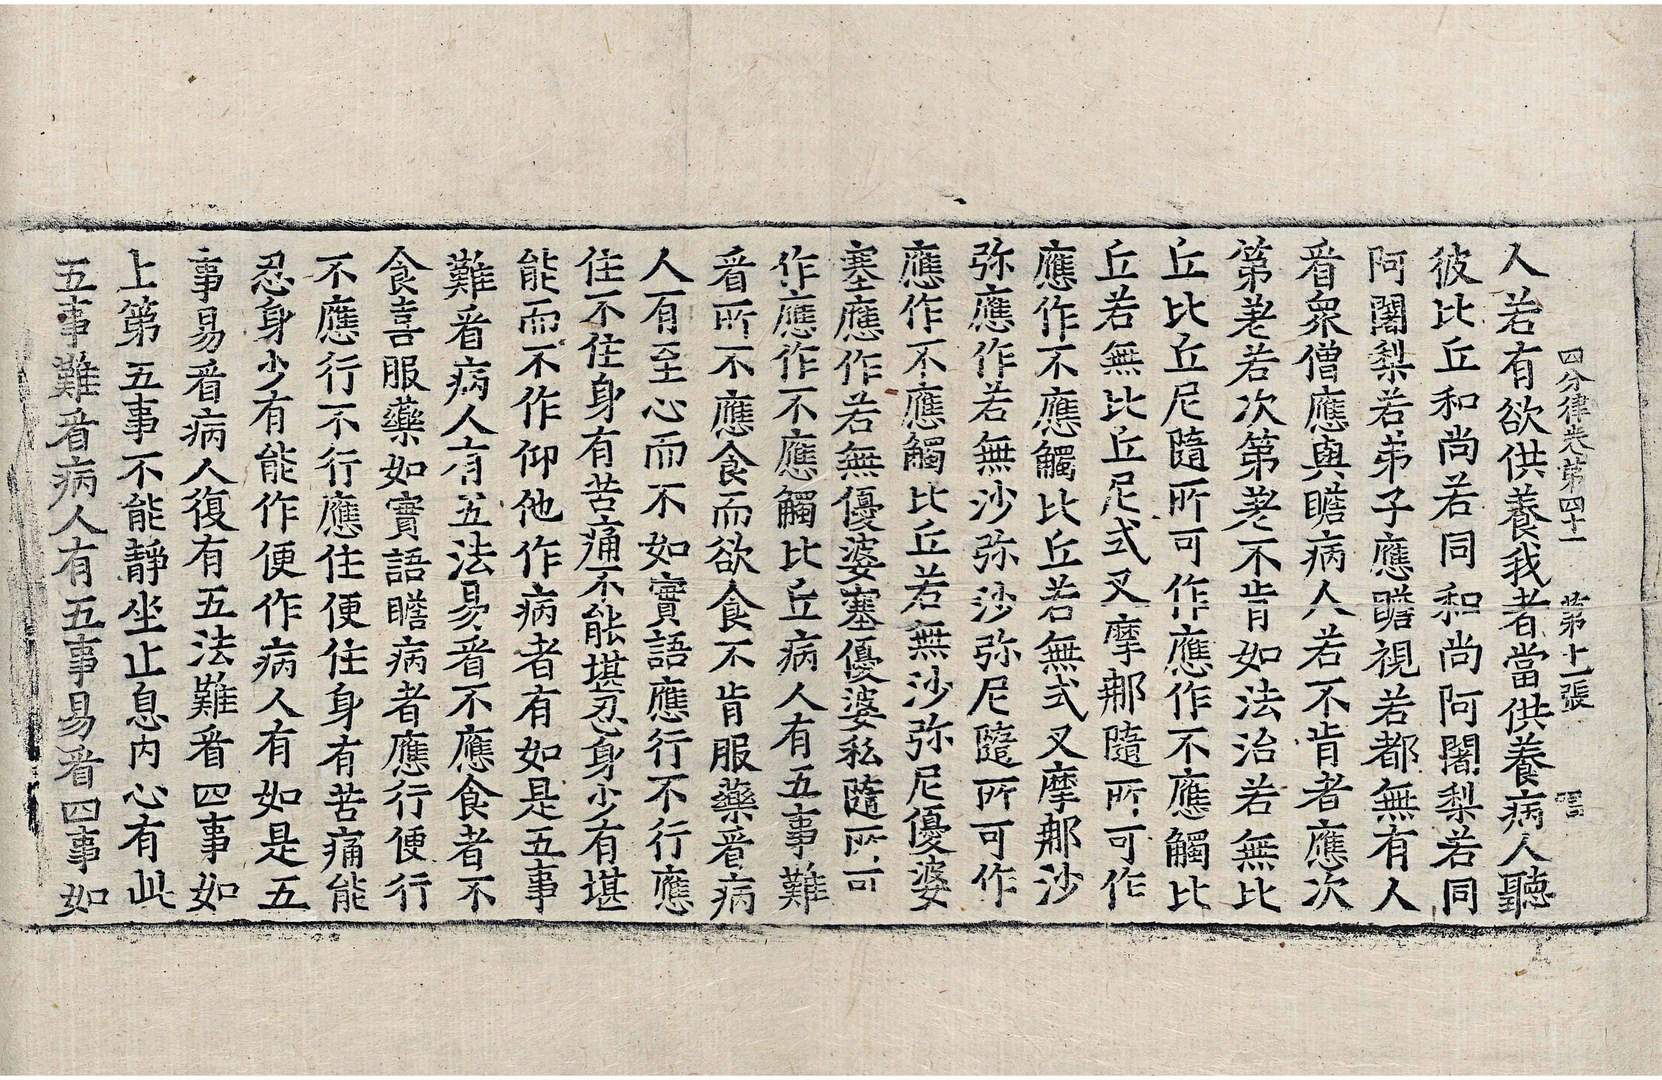 四分律卷第四十一　第十一張
人若有欲供養我者當供養病人聽
彼比丘和尚若同和尚阿闍梨若同
阿闍梨若弟子應瞻視若都無有人
看衆僧應與瞻病人若不肯者應次
第差若次第差不肯如法治若無比
丘比丘尼隨所可作應作不應觸比
丘若無比丘尼式叉摩那隨所可作
應作不應觸比丘若無式叉摩那沙
弥應作若無沙弥沙弥尼隨所可作
應作不應觸比丘若無沙弥尼優婆
塞應作若無優婆塞優婆私隨所可
作應作不應觸比丘病人有五事難
看所不應食而欲食不肯服藥看病
人有至心而不如實語應行不行應
住不住身有苦痛不能堪忍身少有堪
能而不作仰他作病者有如是五事
難看病人有五法易看不應食者不
食喜服藥如實語瞻病者應行便行
不應行不行應住便住身有苦痛能
忍身少有能作便作病人有如是五
事易看病人復有五法難看四事如
上第五事不能靜坐止息内心有此
五事難看病人有五事易看四事如